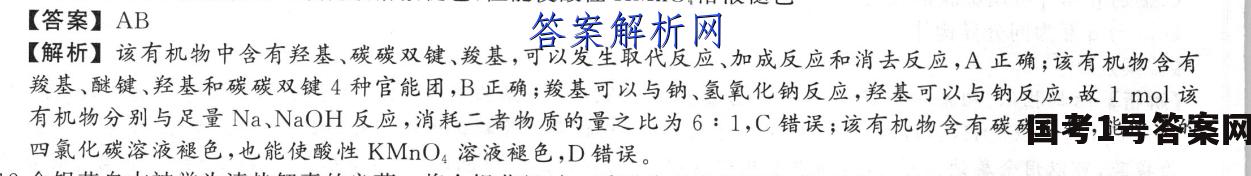 【答案】AB
答案解析网
【解析】该有机物中含有羟基、碳碳双键、羧基,可以发生取代反应、加成反应和消去反应,A 正确;该有机物含有
羧基、醚键、羟基和碳碳双键 4 种官能团,B 正确;羧基可以与钠、氢氧化钠反应,羟基可以与钠反应,故 1 mol 该
有机物分别与足量 Na、NaOH 反应,消耗二者物质的量之比为 6∶1,C 错误;该有机物含有碳碳
国考1号答案网
四氯化碳溶液褪色,也能使酸性 KMnO₄ 溶液褪色,D 错误。